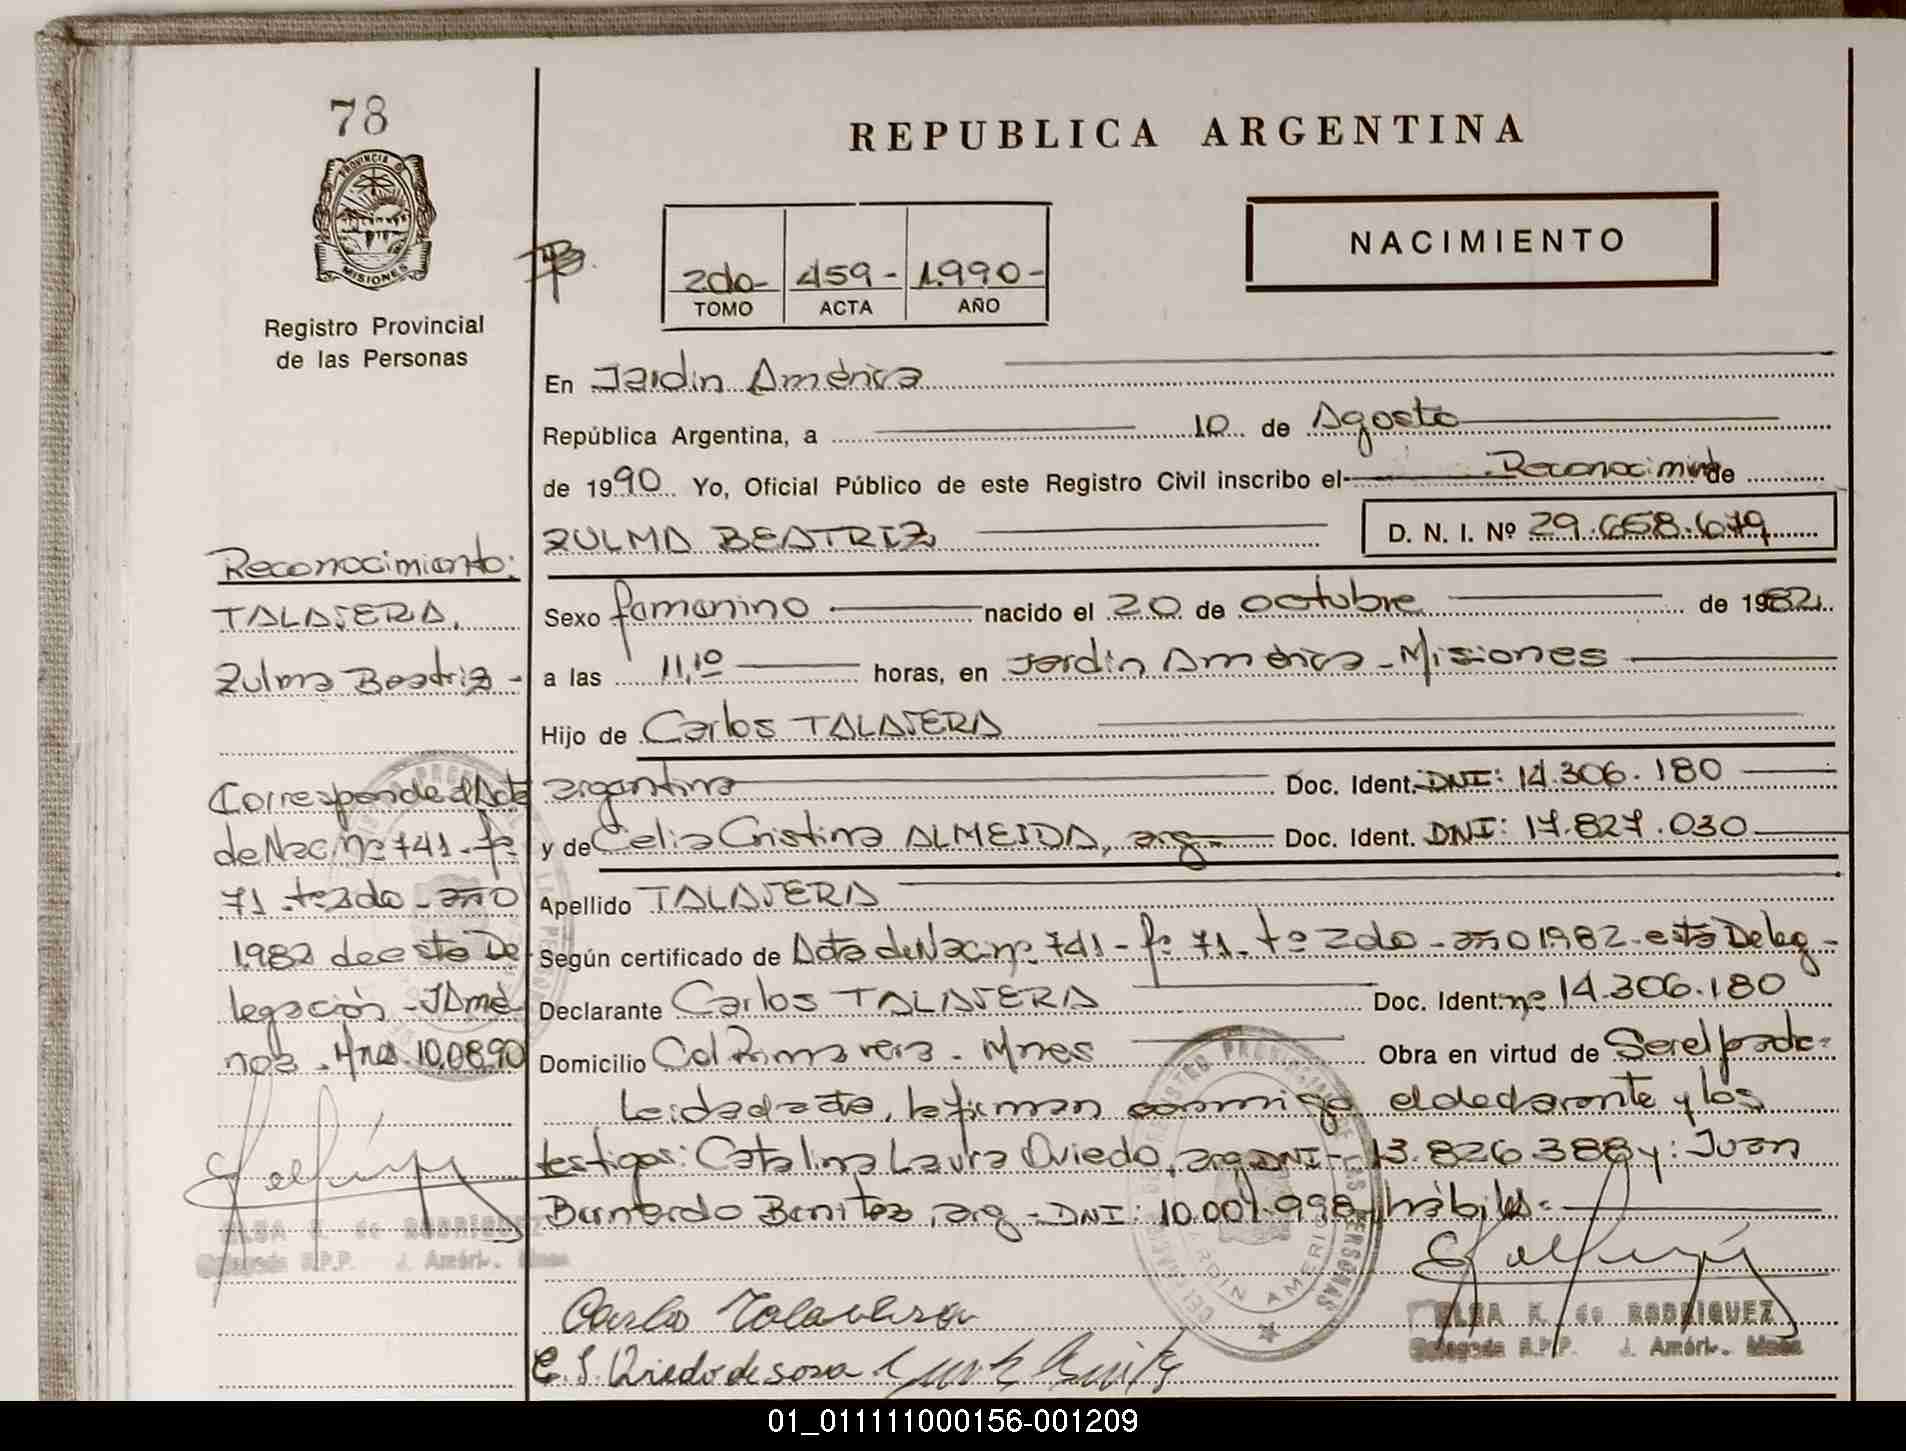 78
PROVINCIA D
MISIONES
Registro Provincial
de las Personas
REPUBLICA ARGENTINA
NACIMIENTO
2do- 459- 1.990-
TOMO ACTA AÑO
En Jardin América
República Argentina, a 10 de Agosto
de 1990 Yo, Oficial Público de este Registro Civil inscribo el Reconocimiento de
ZULMA BEATRIZ D. N. I. Nº 29.658.679
Sexo femenino nacido el 20 de octubre de 1982
a las 11,10 horas, en Jardin América - Misiones
Hijo de Carlos TALAVERA
argentina Doc. Ident. DNI: 14.306.180
y de Celia Cristina ALMEIDA, arg- Doc. Ident. DNI: 17.827.030
Apellido TALAVERA
Según certificado de Acta de Nac. nº 741 - fº 71 - tº 2do - año 1982 - esta Deleg-
Declarante Carlos TALAVERA Doc. Ident. nº 14.306.180
Domicilio Col Primavera - Mnes Obra en virtud de Ser el padre=
Leida el acta, la firman conmigo el declarante y los
testigos: Catalina Laura Oviedo, arg DNI- 13.826.388 y: Juan
Bernardo Benitez, arg - DNI: 10.007.998, hábiles=
Carlos Talavera
Oviedo de sosa
ELBA K. de RODRIGUEZ
Delegada R.P.P. J. Améri. Mnes
Reconocimiento:
TALAVERA,
Zulma Beatriz -
Corresponde al Acta
de Nac. nº 741 - fº
71 - tº 2do - año
1.982 de esta De
legación - J Amé
rica - Mnes. 10.08.90
ELBA K. de RODRIGUEZ
Delegada R.P.P. J. Améri. Mnes
01_011111000156-001209